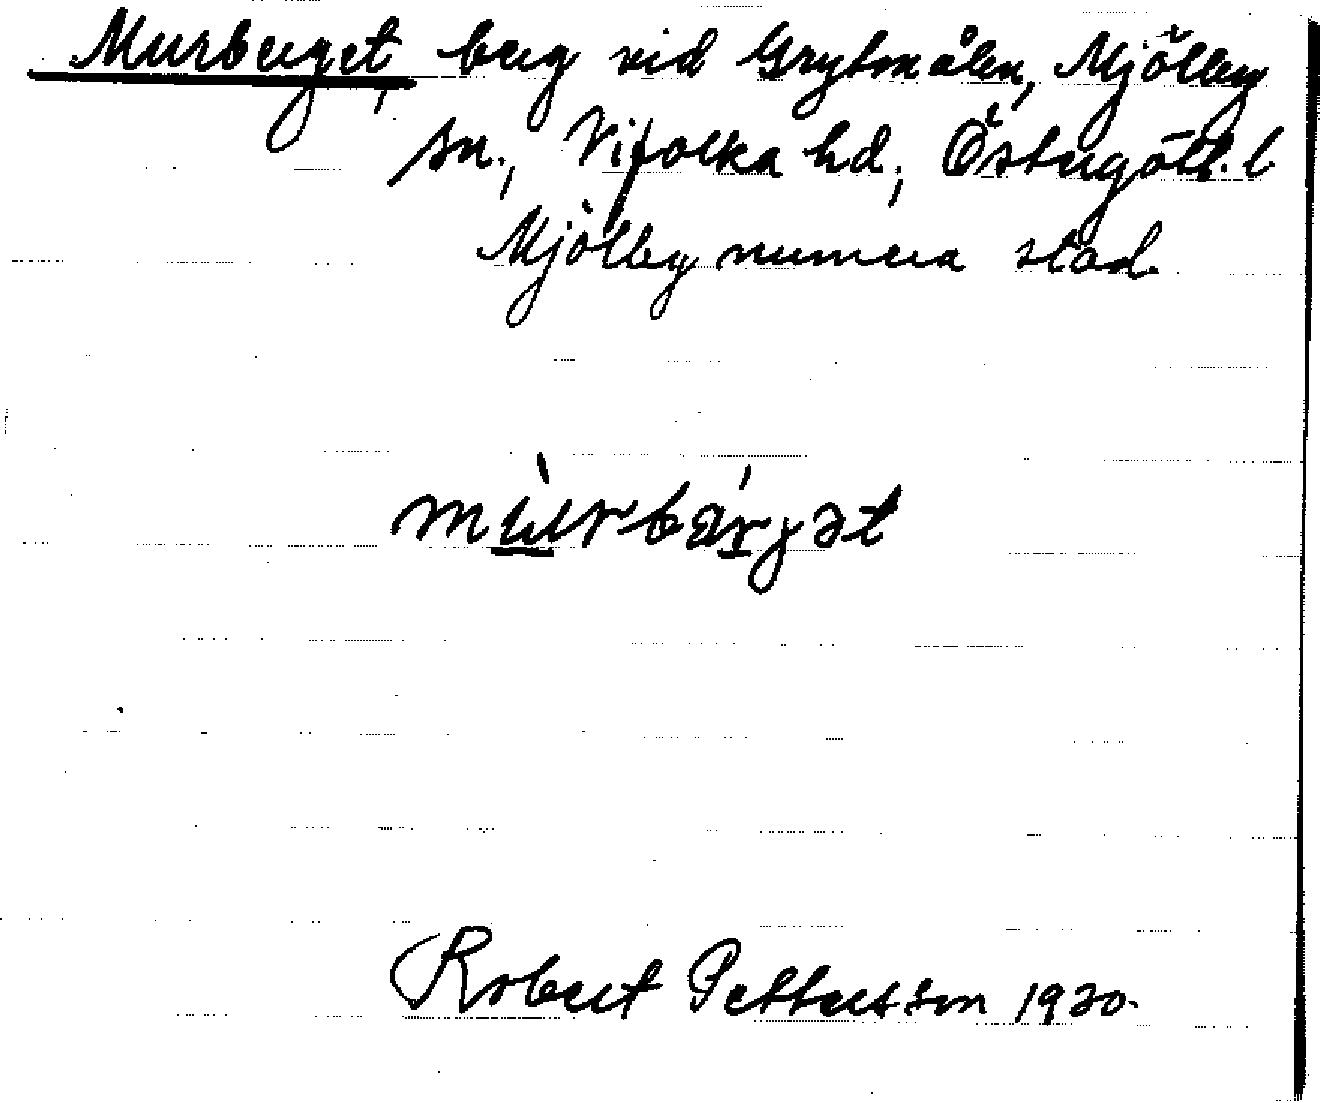 Murberget, berg vid Grytmålen, Mjölby
sn., Vifolka hd, Östergötl. l.
Mjölby numera stad.
mùrbárjət
Robert Pettersson 1930.